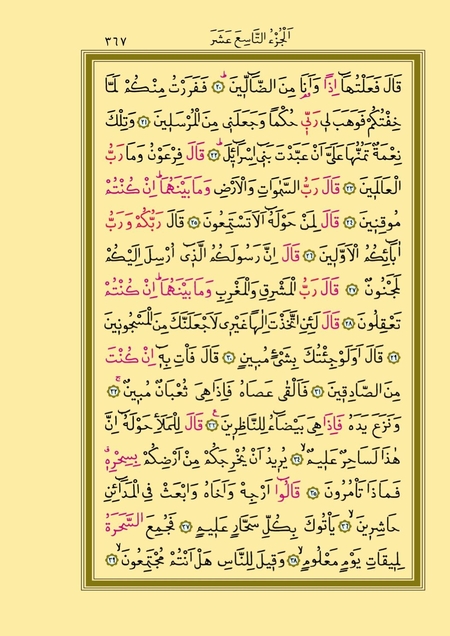 اَلْجُزْءُ التَّاسِعَ عَشَرَ
٣٦٧
قَالَ فَعَلْتُهَٓا اِذًا وَاَنَا۬ مِنَ الضَّٓالّ۪ينَۜ ﴿٢٠﴾ فَفَرَرْتُ مِنْكُمْ لَمَّا
خِفْتُكُمْ فَوَهَبَ ل۪ي رَبّ۪ي حُكْمًا وَجَعَلَن۪ي مِنَ الْمُرْسَل۪ينَ ﴿٢١﴾ وَتِلْكَ
نِعْمَةٌ تَمُنُّهَا عَلَيَّ اَنْ عَبَّدْتَ بَن۪ٓي اِسْرَٓاء۪يلَۜ ﴿٢٢﴾ قَالَ فِرْعَوْنُ وَمَا رَبُّ
الْعَالَم۪ينَ ﴿٢٣﴾ قَالَ رَبُّ السَّمٰوَاتِ وَالْاَرْضِ وَمَا بَيْنَهُمَاۜ اِنْ كُنْتُمْ
مُوقِن۪ينَ ﴿٢٤﴾ قَالَ لِمَنْ حَوْلَهُٓ اَلَا تَسْتَمِعُونَ ﴿٢٥﴾ قَالَ رَبُّكُمْ وَرَبُّ
اٰبَٓائِكُمُ الْاَوَّل۪ينَ ﴿٢٦﴾ قَالَ اِنَّ رَسُولَكُمُ الَّذ۪ٓي اُرْسِلَ اِلَيْكُمْ
لَمَجْنُونٌ ﴿٢٧﴾ قَالَ رَبُّ الْمَشْرِقِ وَالْمَغْرِبِ وَمَا بَيْنَهُمَاۜ اِنْ كُنْتُمْ
تَعْقِلُونَ ﴿٢٨﴾ قَالَ لَئِنِ اتَّخَذْتَ اِلٰهًا غَيْر۪ي لَاَجْعَلَنَّكَ مِنَ الْمَسْجُون۪ينَ
﴿٢٩﴾ قَالَ اَوَلَوْ جِئْتُكَ بِشَيْءٍ مُب۪ينٍ ﴿٣٠﴾ قَالَ فَأْتِ بِه۪ٓ اِنْ كُنْتَ
مِنَ الصَّادِق۪ينَ ﴿٣١﴾ فَاَلْقٰى عَصَاهُ فَاِذَا هِيَ ثُعْبَانٌ مُب۪ينٌۚ ﴿٣٢﴾
وَنَزَعَ يَدَهُ فَاِذَا هِيَ بَيْضَٓاءُ لِلنَّاظِر۪ينَ۟ ﴿٣٣﴾ قَالَ لِلْمَلَأِ حَوْلَهُٓ اِنَّ
هٰذَا لَسَاحِرٌ عَل۪يمٌۙ ﴿٣٤﴾ يُر۪يدُ اَنْ يُخْرِجَكُمْ مِنْ اَرْضِكُمْ بِسِحْرِه۪ۗ
فَمَاذَا تَأْمُرُونَ ﴿٣٥﴾ قَالُٓوا اَرْجِهْ وَاَخَاهُ وَابْعَثْ فِي الْمَدَٓائِنِ
حَاشِر۪ينَۙ ﴿٣٦﴾ يَأْتُوكَ بِكُلِّ سَحَّارٍ عَل۪يمٍ ﴿٣٧﴾ فَجُمِعَ السَّحَرَةُ
لِم۪يقَاتِ يَوْمٍ مَعْلُومٍۙ ﴿٣٨﴾ وَق۪يلَ لِلنَّاسِ هَلْ اَنْتُمْ مُجْتَمِعُونَۙ ﴿٣٩﴾